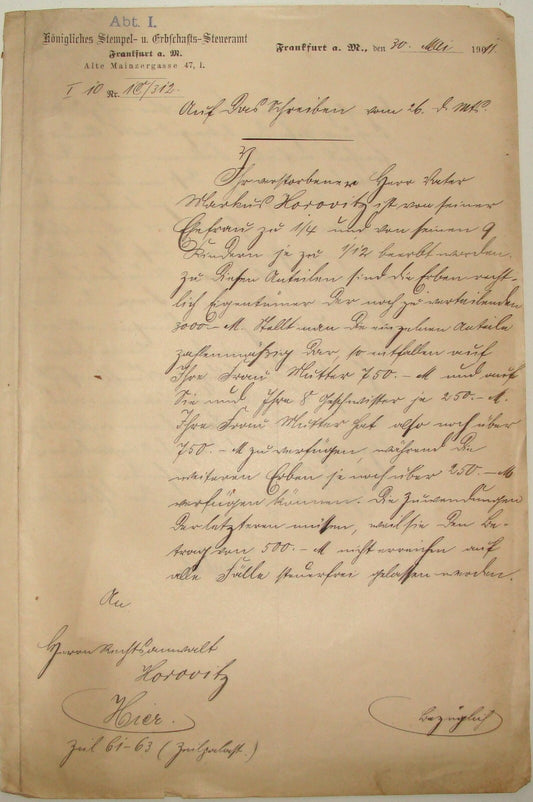 Abt. I.
Königliches Stempel- u. Erbschafts-Steueramt
Frankfurt a. M.
Alte Mainzergasse 47, I.
Frankfurt a. M., den 30. Mai 1911
I 10 Nr. 10/312.
Auf das Schreiben vom 26. d. Mts.
Ihr verstorbener Herr Vater
Markus Horovitz ist von seiner
Ehefrau zu 1/4 und von seinen 9
Kindern je zu 1/12 beerbt worden.
Zu diesen Anteilen sind die Erben recht-
lich Eigentümer der noch zu verteilenden
3000 M. Stellt man die einzelnen Anteile
zahlenmässig dar, so entfallen auf
Ihre Frau Mutter 750.- M und auf
Sie und Ihre 8 Geschwister je 250.- M.
Ihre Frau Mutter hat also noch über
750.- M zu verfügen, während die
weiteren Erben je noch über 250.- M
verfügen können. Die Zuwendungen
der letzteren müssen, weil sie den Be-
trag von 500.- M nicht erreichen auf
alle Fälle steuerfrei gelassen werden.
An
Herrn Rechtsanwalt
Horovitz
Hier.
Zeil 61-63 (Zeilpalast.)